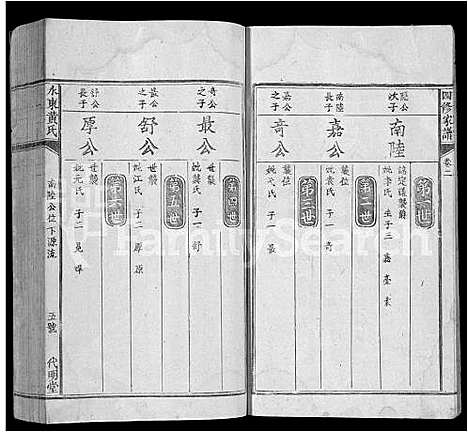 四修家譜
卷二
第一世
陸終公
次子
南陸
諱定遠襲爵
妣李氏 生子三 嘉 臺 素
第二世
南陸
長子
嘉公
襲位
妣袁氏 子一 奇
第三世
嘉公
之子
奇公
襲位
妣尤氏 子一 最
第四世
奇公
之子
最公
世襲
妣龔氏 子一 舒
第五世
最公
之子
舒公
世襲
妣江氏 子二 厚 原
第六世
舒公
長子
厚公
世襲
妣元氏 子二
水東黃氏
南陸公位下源流
五號
代明堂
FamilySearch